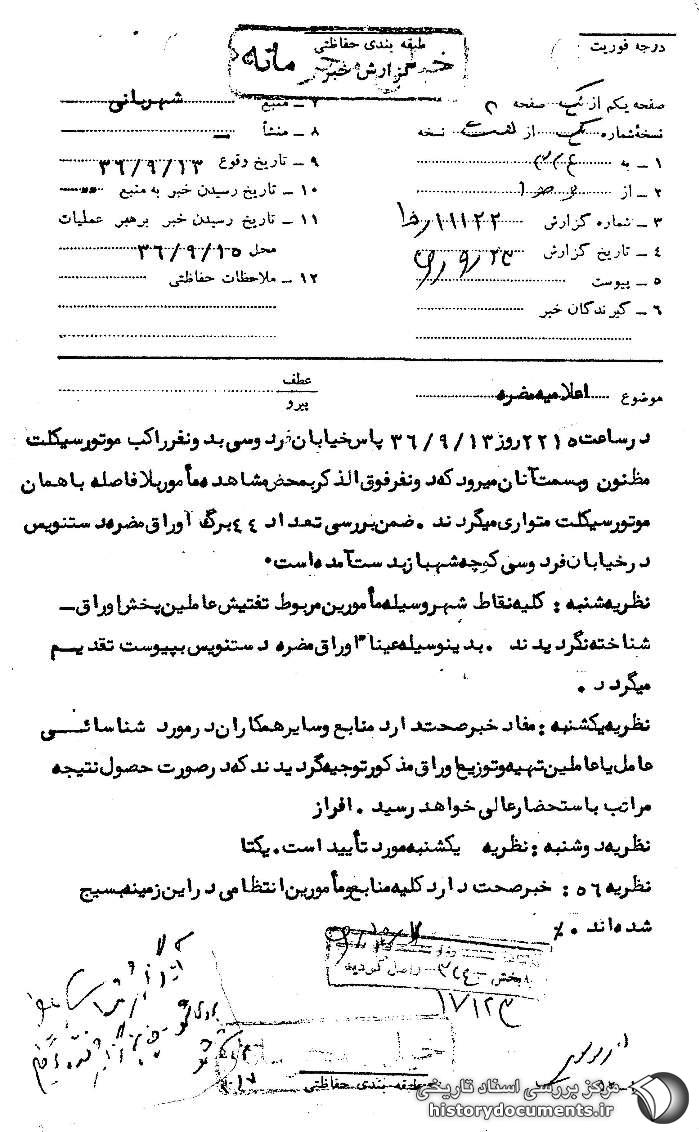 درجه فوریت
طبقه بندی حفاظتی
گزارش خبر
خیلی محرمانه
صفحه یکم از یک صفحه
نسخه شماره یک از هفت نسخه
۱ ــ به ۳۴۱
۲ ــ از
۳ ــ شماره گزارش ۱۱۱۲۲
۴ ــ تاریخ گزارش
۵ ــ پیوست
۶ ــ گیرندگان خبر
۷ ــ منبع شهربانی
۸ ــ منشأ
۹ ــ تاریخ وقوع ۳۶/۹/۱۳
۱۰ ــ تاریخ رسیدن خبر به منبع
۱۱ ــ تاریخ رسیدن خبر برهبر عملیات
محل ۳۶/۹/۱۵
۱۲ ــ ملاحظات حفاظتی
موضوع اعلامیه مضره
عطف
پیرو
در ساعت ۲۲۱۵ روز ۳۶/۹/۱۳ پاس خیابان فردوسی بدونفر راکب موتورسیکلت
مظنون وبسمت آنان میرود که دونفر فوق الذکر بمحض مشاهده مأمور بلافاصله با همان
موتورسیکلت متواری میگردند . ضمن بررسی تعداد ۴۴ برگ اوراق مضره دستنویس
در خیابان فردوسی کوچه شهباز بدست آمده است .
نظریه شنبه : کلیه نقاط شهر وسیله مأمورین مربوط تفتیش عاملین پخش اوراق ــ
شناخته نگردیدند . بدینوسیله عیناً اوراق مضره دستنویس بپیوست تقدیم
میگردد .
نظریه یکشنبه : مفاد خبر صحت دارد منابع وسایر همکاران در مورد شناسائی
عامل یا عاملین تهیه و توزیع اوراق مذکور توجیه گردیدند که در صورت حصول نتیجه
مراتب باستحضار عالی خواهد رسید . افراز
نظریه دوشنبه : نظریه یکشنبه مورد تأیید است . یکتا
نظریه ۵۶ : خبر صحت دارد کلیه منابع ومأمورین انتظامی در این زمینه بسیج
شده اند . ٪
به بخش ۳۴۱ واصل گردید
۱۷۱۲۳
طبقه بندی حفاظتی
مرکز بررسی اسناد تاریخی
historydocuments.ir